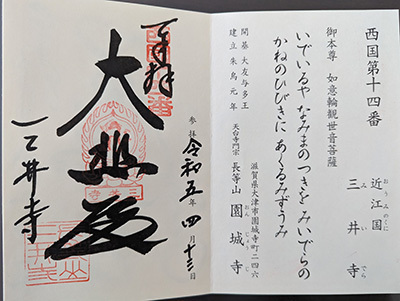 西国第十四番
近江国
おうみのくに
三井寺
みいでら
御本尊 如意輪観世音菩薩
いでいるや なみまのつきを みいでらの
かねのひびきに あくるみずうみ
開基 大友与多王
建立 朱鳥元年
滋賀県大津市園城寺町二四六
天台寺門宗 長等山 園城寺
おんじょうじ
奉拝
大悲殿
三井寺
参拝 令和五年四月十三日